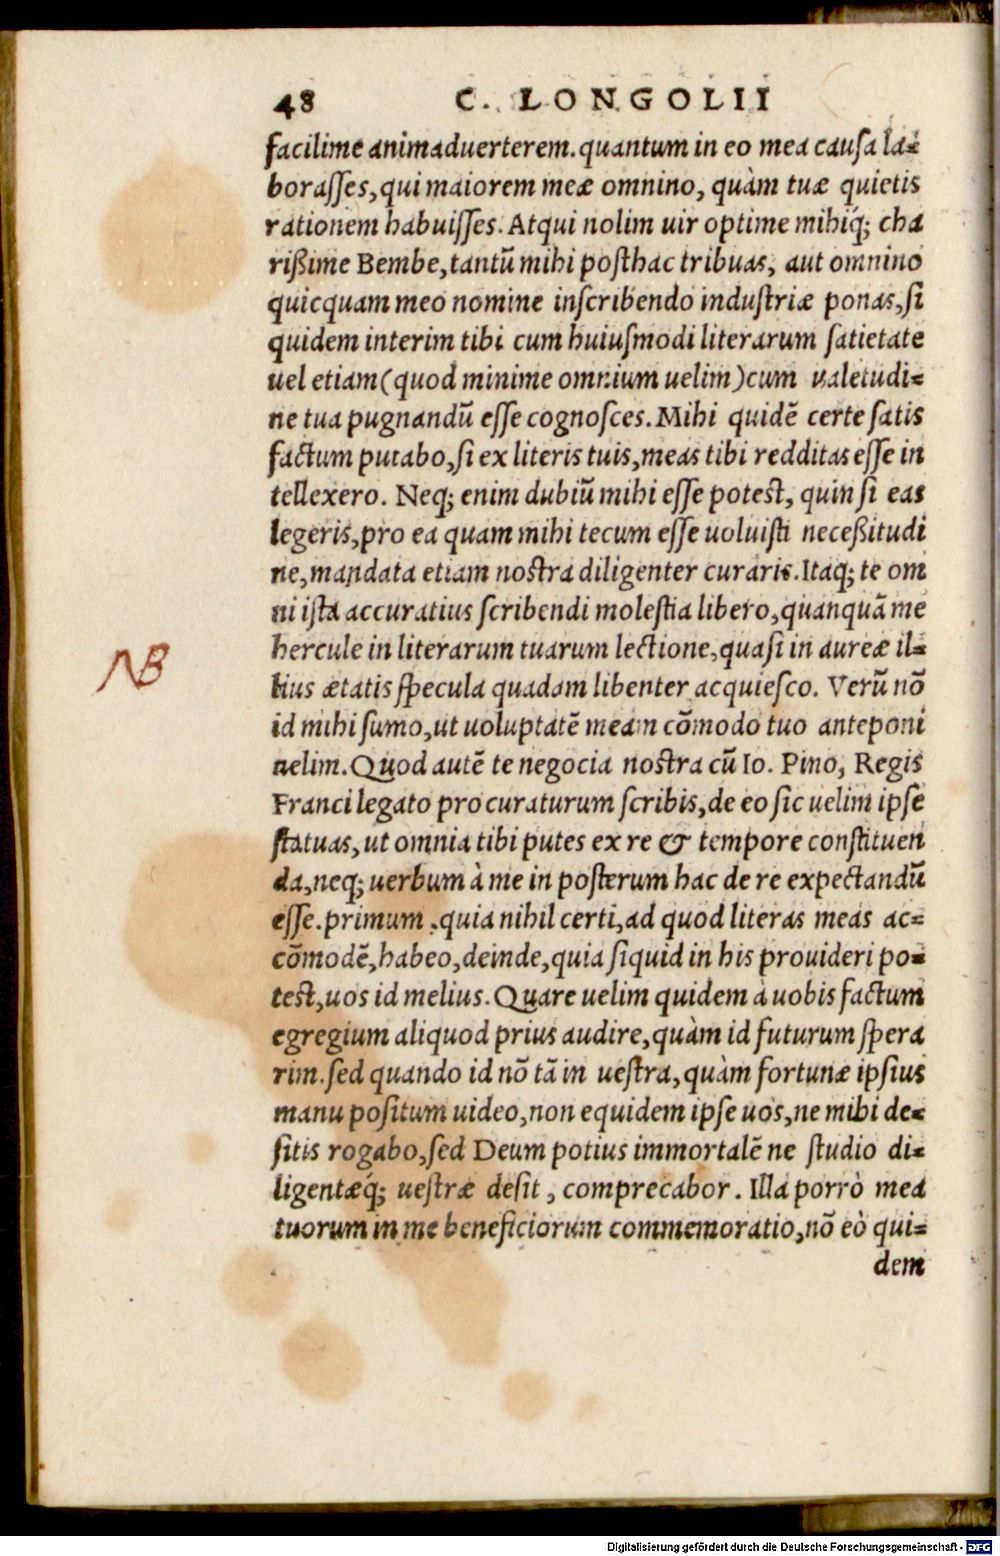 48 C. LONGOLII
facilime animaduerterem. quantum in eo mea causa la-
borasses, qui maiorem meæ omnino, quàm tuæ quietis
rationem habuisses. Atqui nolim uir optime mihiq́; cha
rißime Bembe, tantū mihi posthac tribuas, aut omnino
quicquam meo nomine inscribendo industriæ ponas, si
quidem interim tibi cum huiusmodi literarum satietate
uel etiam (quod minime omnium uelim) cum valetudi-
ne tua pugnandū esse cognosces. Mihi quidē certe satis
factum putabo, si ex literis tuis, meas tibi redditas esse in
tellexero. Neq; enim dubiū mihi esse potest, quin si eas
legeris, pro ea quam mihi tecum esse uoluisti neceßitudi
ne, mandata etiam nostra diligenter curaris. Itaq; te om
ni ista accuratius scribendi molestia libero, quanquā me
hercule in literarum tuarum lectione, quasi in aureæ il-
NB
lius ætatis specula quadam libenter acquiesco. Verū nō
id mihi sumo, ut uoluptatē meam cōmodo tuo anteponi
uelim. Quod autē te negocia nostra cū Io. Pino, Regis
Franci legato procuraturum scribis, de eo sic uelim ipse
statuas, ut omnia tibi putes ex re & tempore constituen
da, neq; uerbum à me in posterum hac de re expectandū
esse. primum, quia nihil certi, ad quod literas meas ac-
cōmodē, habeo, deinde, quia siquid in his prouideri po-
test, uos id melius. Quare uelim quidem à uobis factum
egregium aliquod prius audire, quàm id futurum spera
rim. sed quando id nō tā in uestra, quàm fortunæ ipsius
manu positum uideo, non equidem ipse uos, ne mihi de-
sitis rogabo, sed Deum potius immortalē ne studio di-
ligentæq́; uestræ desit, comprecabor. Illa porrò mea
tuorum in me beneficiorum commemoratio, nō eò qui-
dem
Digitalisierung gefördert durch die Deutsche Forschungsgemeinschaft - DFG